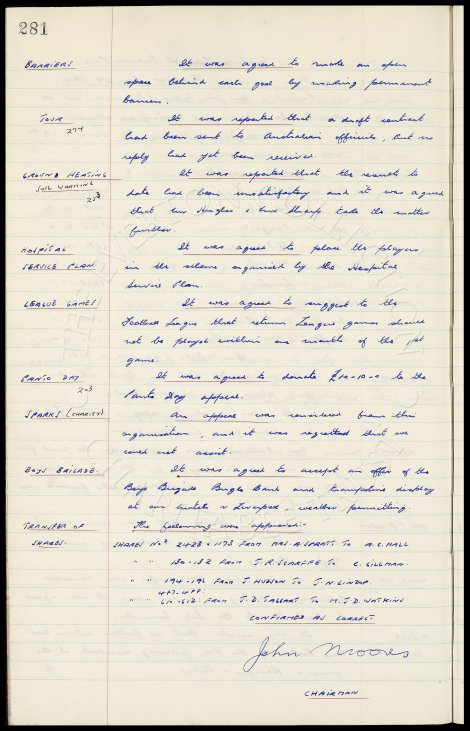 281
BARRIERS It was agreed to make an open
space behind each goal by making permanent
barriers.
TOUR It was reported that a draft contract
277 had been sent to Australian officials, but no
reply had yet been received.
GROUND HEATING It was reported that the results to
SOIL WARMING date had been unsatisfactory and it was agreed
that Mr Hughes & Mr Sharp take the matter
further.
HOSPITAL It was agreed to place the players
SERVICE PLAN in the scheme organised by the Hospital
Service Plan.
LEAGUE GAMES It was agreed to suggest to the
Football League that return League games should
not be played within one month of the 1st
game.
PANTO DAY It was agreed to donate £10-10-0 to the
Panto Day appeal.
SPARKS (CHARITY) An appeal was received from this
organisation, and it was regretted that we
could not assist.
BOYS BRIGADE It was agreed to accept an offer of the
Boys Brigade Bugle Band and display
at our match v Liverpool, weather permitting.
TRANSFER OF The following were approved:-
SHARES. SHARES Nos 2428 1173 FROM MRS. A. SPRATT TO A.C. HALL
" " 130-132 FROM J.R. SCARFFE TO C. GILLMAN.
" " 194-196 FROM T. HUDSON TO J.N. LINDOP.
FROM J.D. TAGGART TO M.J.D. WATKINS
CONFIRMED AS CORRECT
John Moores
CHAIRMAN